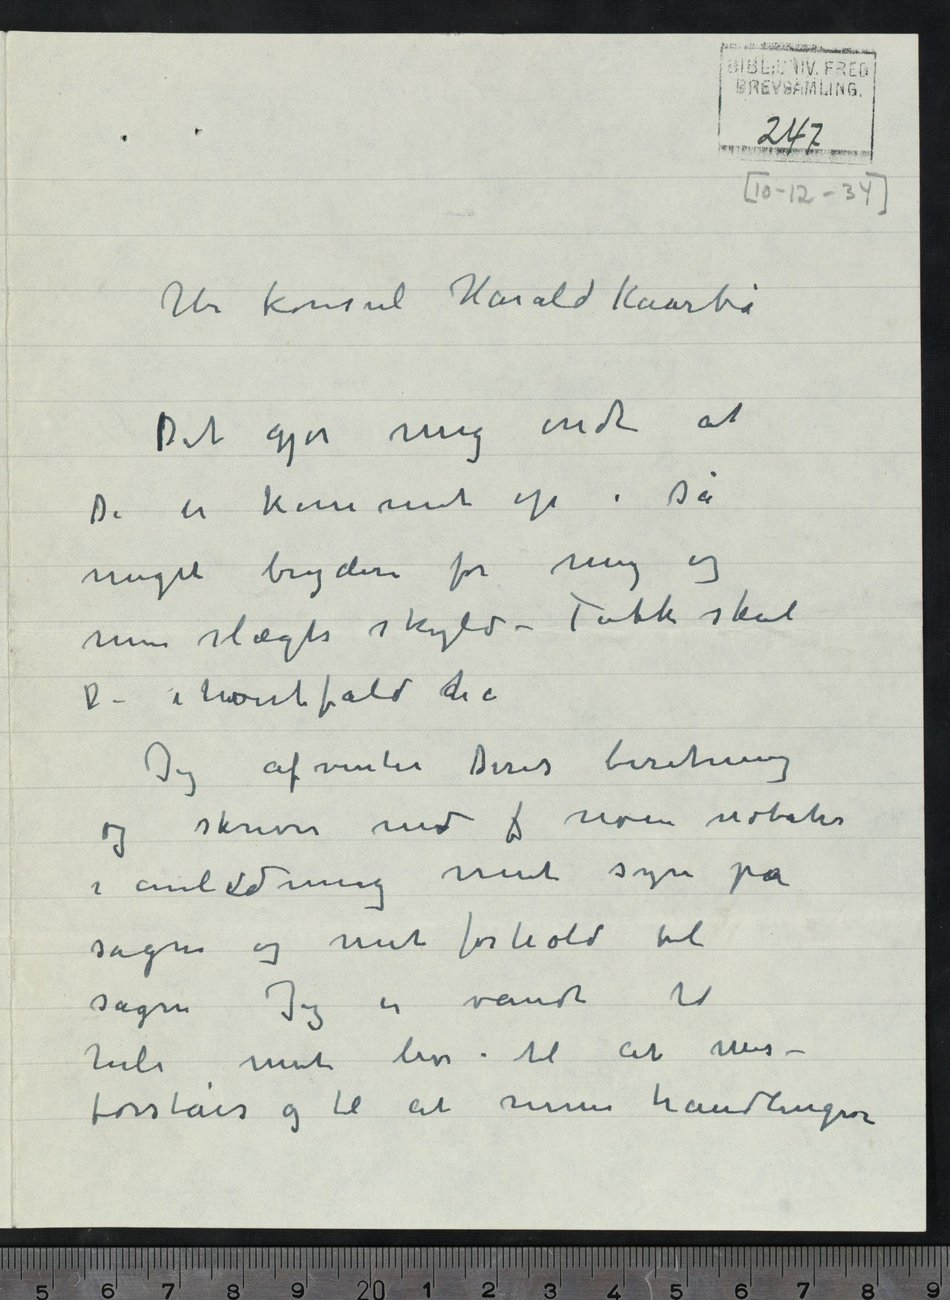 BIBL. UNIV. FRED
BREVSAMLING.
247
[10-12-34]
Hr konsul Harald Kaarbø
Det gjør mig ondt at
De er kommet op i så
meget bryderi for mig og
min slægts skyld - Takk skal
De i hvertfald ha
Jeg afventer Deres beretning
og skriver ned noen notater
i anledning mit syn på
sagen og mit forhold til
sagen Jeg er vandt
hele mit liv til at mis-
forståes og til at mine handlinger